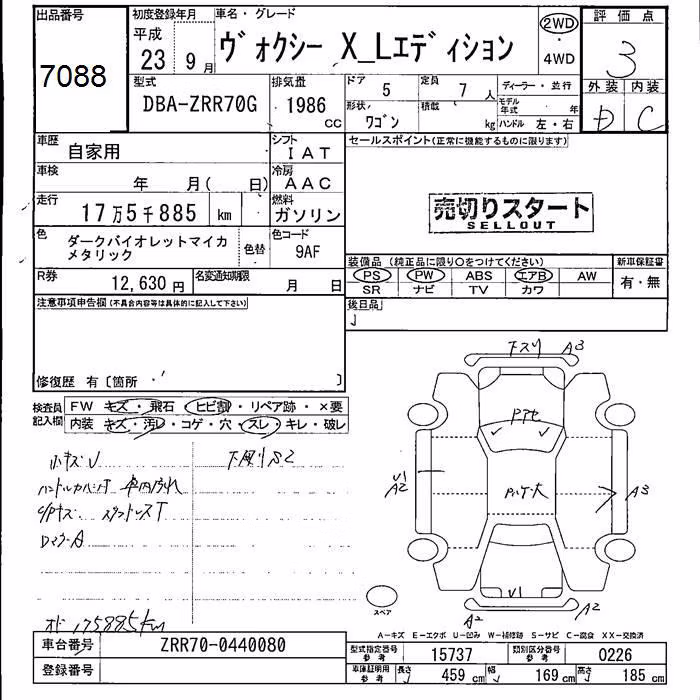 出品番号
7088
初度登録年月
平成
23 9月
車名・グレード
ヴォクシー X_Lエディション
2WD
・
4WD
評価点
3
外装 内装
D C
型式
DBA-ZRR70G
排気量
1986
cc
ドア
5
定員
7人
形状
ワゴン
積載
kg
ディーラー・並行
モデル年式 年
ハンドル 左・右
車歴
自家用
シフト
IAT
車検
年 月( 日)
冷房
AAC
走行
17万5千885 km
燃料
ガソリン
色
ダークバイオレットマイカ
メタリック
色替
色コード
9AF
R券
12,630円
名変通知期限
月 日
セールスポイント(正常に機能するものに限ります)
売切りスタート
SELLOUT
装備品(純正品に限り○をつけてください)
PS PW ABS エアB AW
SR ナビ TV カワ
新車保証書
有・無
後日品
注意事項申告欄(不具合内容等は具体的に記入して下さい)
修復歴 有〔箇所 〕
検査員
記入欄
FW キズ・飛石 ヒビ割・リペア跡・×要
内装 キズ・汚レ・コゲ・穴・スレ・キレ・破レ
小キズU
下廻りS2
車内汚れ
175885km
下スリ A3
U1
A2
A3
U1
A2
A2
スペア
A-キズ E-エクボ U-凹み W-補修跡 S-サビ C-腐食 XX-交換済
車台番号
ZRR70-0440080
登録番号
型式指定番号
参考
15737
類別区分番号
参考
0226
車庫証明用
参考
長さ 459 cm
幅 169 cm
高さ 185 cm